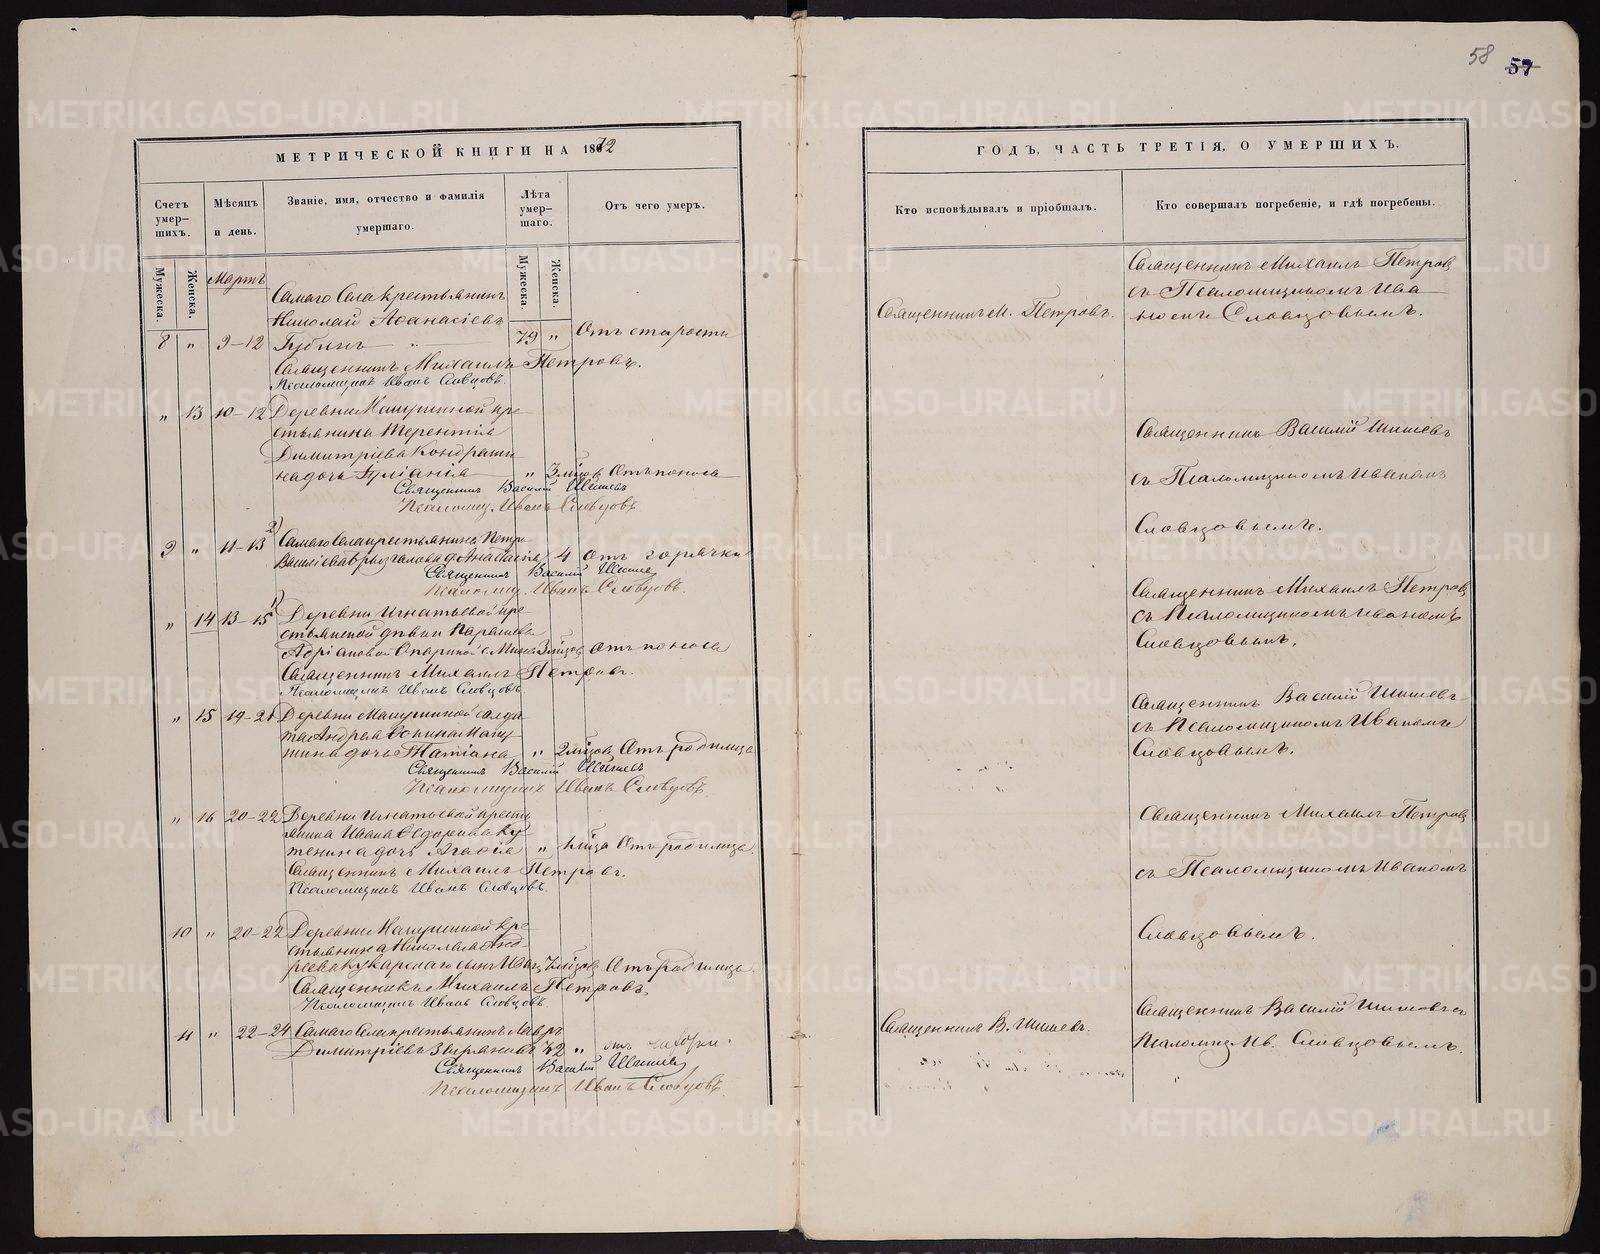 58 57
МЕТРИЧЕСКОЙ КНИГИ НА 1872
Счетъ умер-шихъ.
Мѣсяцъ и день.
Званіе, имя, отчество и фамилія умершаго.
Лѣта умер-шаго.
Отъ чего умеръ.
Мужеска.
Женска.
Мужеска.
Женска.
Мартъ
Самаго Села крестьянинъ
Николай Аѳанасіевъ
8 " 9-12 Губинъ 79 " Отъ старости
Священникъ Михаилъ Петровъ.
Псаломщикъ Иванъ Словцовъ.
" 13 10-12 Деревни Машушиной кре-
стьянина Терентія
Димитріева Кондраши
на дочь Іуліанія " 3 мѣсов Отъ поноса
Священникъ Василій Шишевъ
Псаломщ. Иванъ Словцовъ
9 " 11-13 Самаго Села крестьянина Петра
4 Отъ горячки
Священникъ Василій Шишев
Псаломщ. Иванъ Словцовъ.
" 14 13-15 Деревни Игнатьевой кре-
стьянской дѣвки Параскевы
3 мѣсов Отъ поноса
Священникъ Михаилъ Петровъ.
Псаломщикъ Иванъ Словцовъ
" 15 19-21 Деревни Машушиной солда
та Андрея Машу
шина дочь Татіана " 2 мѣсов Отъ родимца
Священникъ Василій Шишевъ
Псаломщикъ Иванъ Словцовъ
" 16 20-22 Деревни Игнатьевой кресть
янина Ивана Ѳедорова Ку
тенина дочь Агаѳія " 1 мѣсца Отъ родимца.
Священникъ Михаилъ Петровъ.
Псаломщикъ Иванъ Словцовъ.
10 " 20-22 Деревни Машушиной кре-
стьянина Николая Анд-
реева Кукарскаго сынъ Иванъ мѣсов Отъ родимца.
Священникъ Михаилъ Петровъ,
Псаломщикъ Иванъ Словцовъ.
11 " 22-24 Самаго Села крестьянинъ Лавръ
Димитріевъ Зыряновъ " отъ чахотки.
Священникъ Василій Шишев
Псаломщикъ Иванъ Словцовъ.
ГОДЪ, ЧАСТЬ ТРЕТІЯ, О УМЕРШИХЪ.
Кто исповѣдывалъ и пріобщалъ.
Кто совершалъ погребеніе, и гдѣ погребены.
Священникъ Михаилъ Петровъ
съ Псаломщикомъ Ива
Священникъ М. Петровъ. номъ Словцовымъ.
Священникъ Василій Шишевъ
съ Псаломщикомъ Иваномъ
Словцовымъ.
Священникъ Михаилъ Петровъ
съ Псаломщикомъ Иваномъ
Словцовымъ.
Священникъ Василій Шишевъ
съ Псаломщикомъ Иваномъ
Словцовымъ.
Священникъ Михаилъ Петровъ
съ Псаломщикомъ Иваномъ
Словцовымъ.
Священникъ Василій Шишевъ съ
Священникъ В. Шишевъ.
Псаломщ. Ив. Словцовымъ.
METRIKI.GASO-URAL.RU